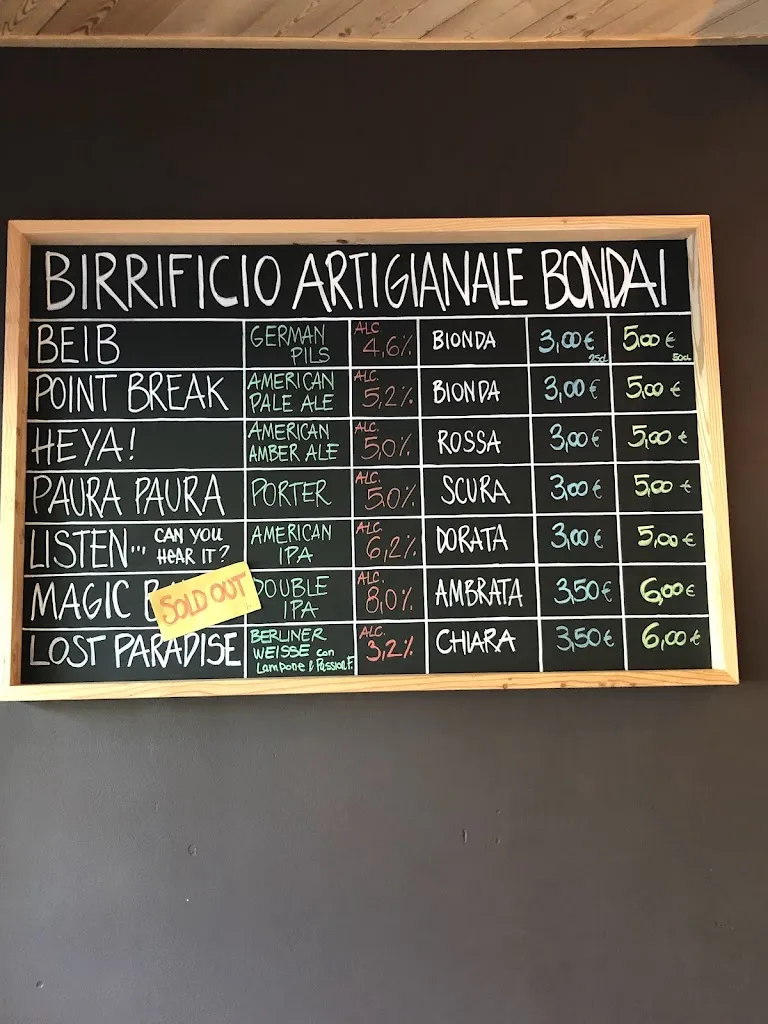 BIRRIFICIO ARTIGIANALE BONDAI
BEIB GERMAN PILS ALC. 4,6% BIONDA 3,00€ 25cl 5,00€ 50cl
POINT BREAK AMERICAN PALE ALE ALC. 5,2% BIONDA 3,00€ 5,00€
HEYA! AMERICAN AMBER ALE ALC. 5,0% ROSSA 3,00€ 5,00€
PAURA PAURA PORTER ALC. 5,0% SCURA 3,00€ 5,00€
LISTEN... CAN YOU HEAR IT? AMERICAN IPA ALC. 6,2% DORATA 3,00€ 5,00€
MAGIC SOLD OUT DOUBLE IPA ALC. 8,0% AMBRATA 3,50€ 6,00€
LOST PARADISE BERLINER WEISSE con Lampone & Passion F. ALC. 3,2% CHIARA 3,50€ 6,00€